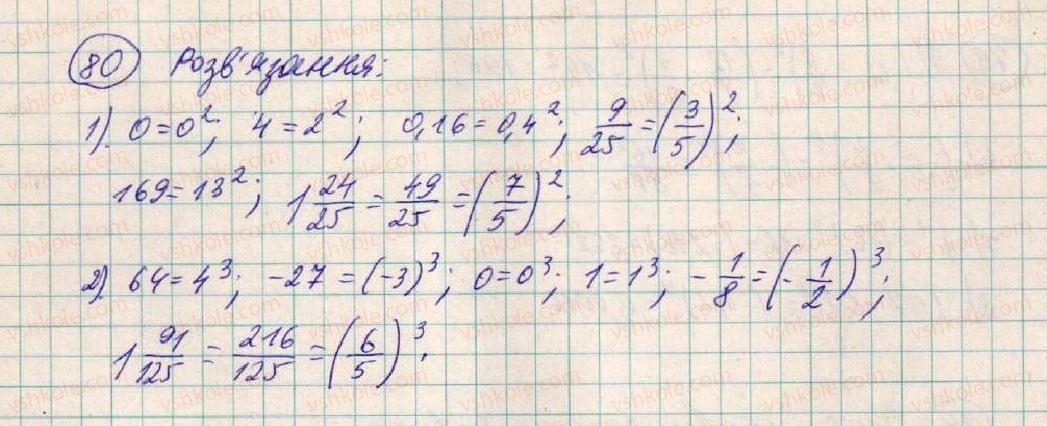 80 Розв'язання:
1). 0=0²; 4=2²; 0,16=0,4²; 9/25=(3/5)²;
169=13²; 1 24/25=49/25=(7/5)²;
2). 64=4³; -27=(-3)³; 0=0³; 1=1³; -1/8=(-1/2)³;
1 91/125=216/125=(6/5)³.